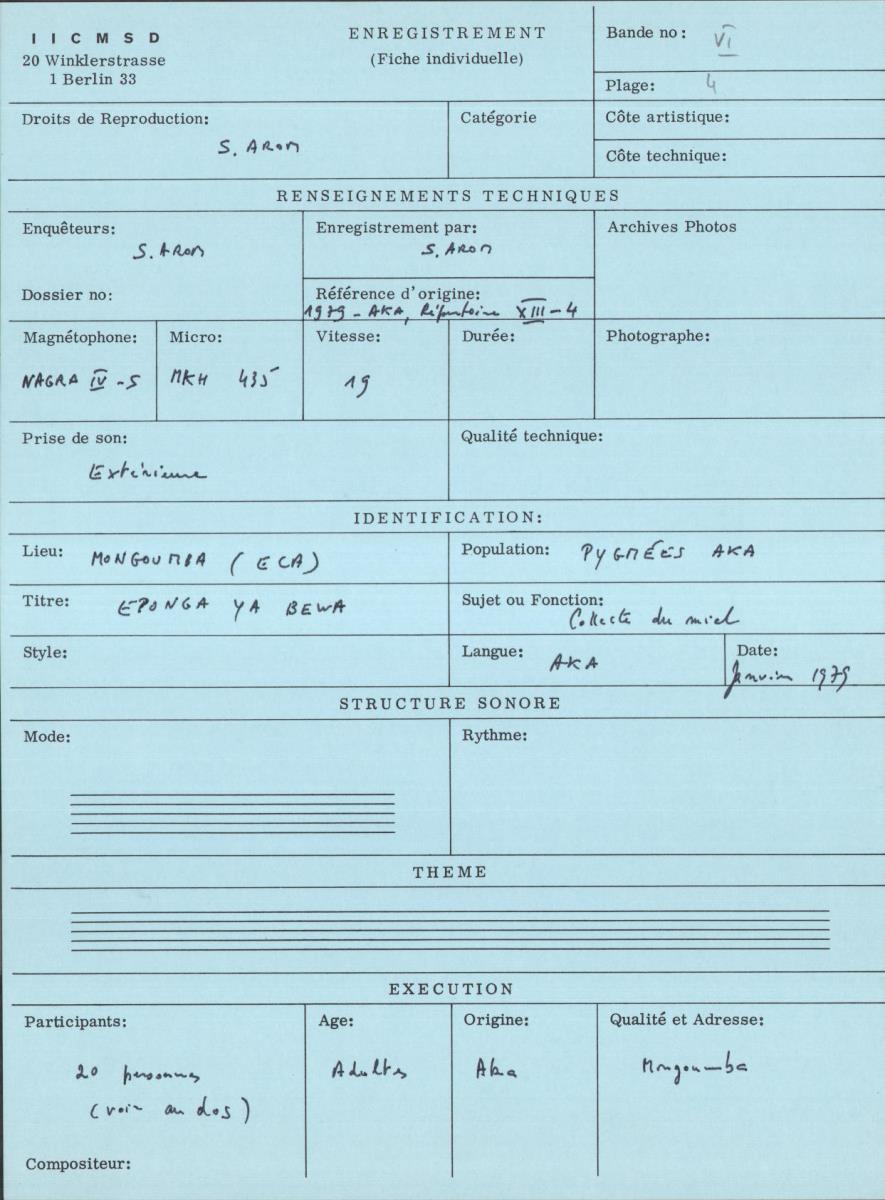 I I C M S D
20 Winklerstrasse
1 Berlin 33
ENREGISTREMENT
(Fiche individuelle)
Bande no: VI
Plage: 4
Droits de Reproduction:
S. AROM
Catégorie
Côte artistique:
Côte technique:
RENSEIGNEMENTS TECHNIQUES
Enquêteurs:
S. AROM
Dossier no:
Enregistrement par:
S. AROM
Référence d'origine:
1979 - AKA, Répertoire XIII - 4
Archives Photos
Magnétophone:
NAGRA IV - S
Micro:
MKH 435
Vitesse:
19
Durée:
Photographe:
Prise de son:
Extérieure
Qualité technique:
IDENTIFICATION:
Lieu: MONGOUMBA (ECA)
Population: PYGMÉES AKA
Titre: EPONGA YA BEWA
Sujet ou Fonction:
Collecte du miel
Style:
Langue: AKA
Date:
Janvier 1979
STRUCTURE SONORE
Mode:
Rythme:
THEME
EXECUTION
Participants:
20 personnes
(voir au dos)
Age:
Adultes
Origine:
Aka
Qualité et Adresse:
Mongoumba
Compositeur: